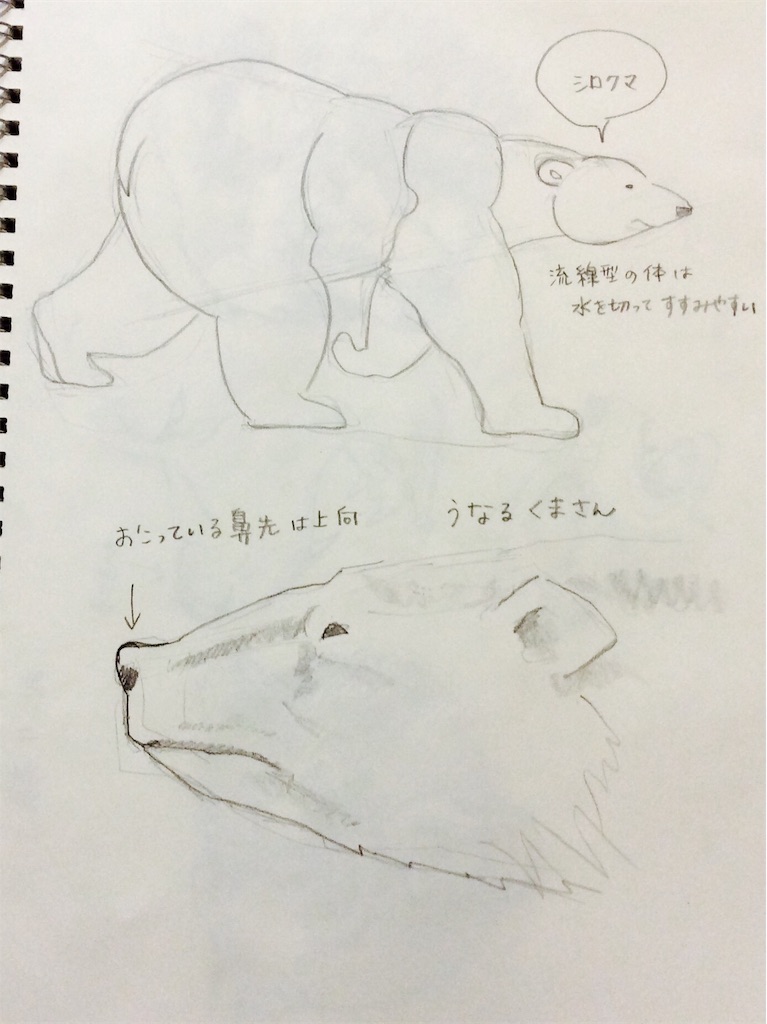 シロクマ
流線型の体は
水を切ってすすみやすい
おこっている鼻先は上向
うなるくまさん